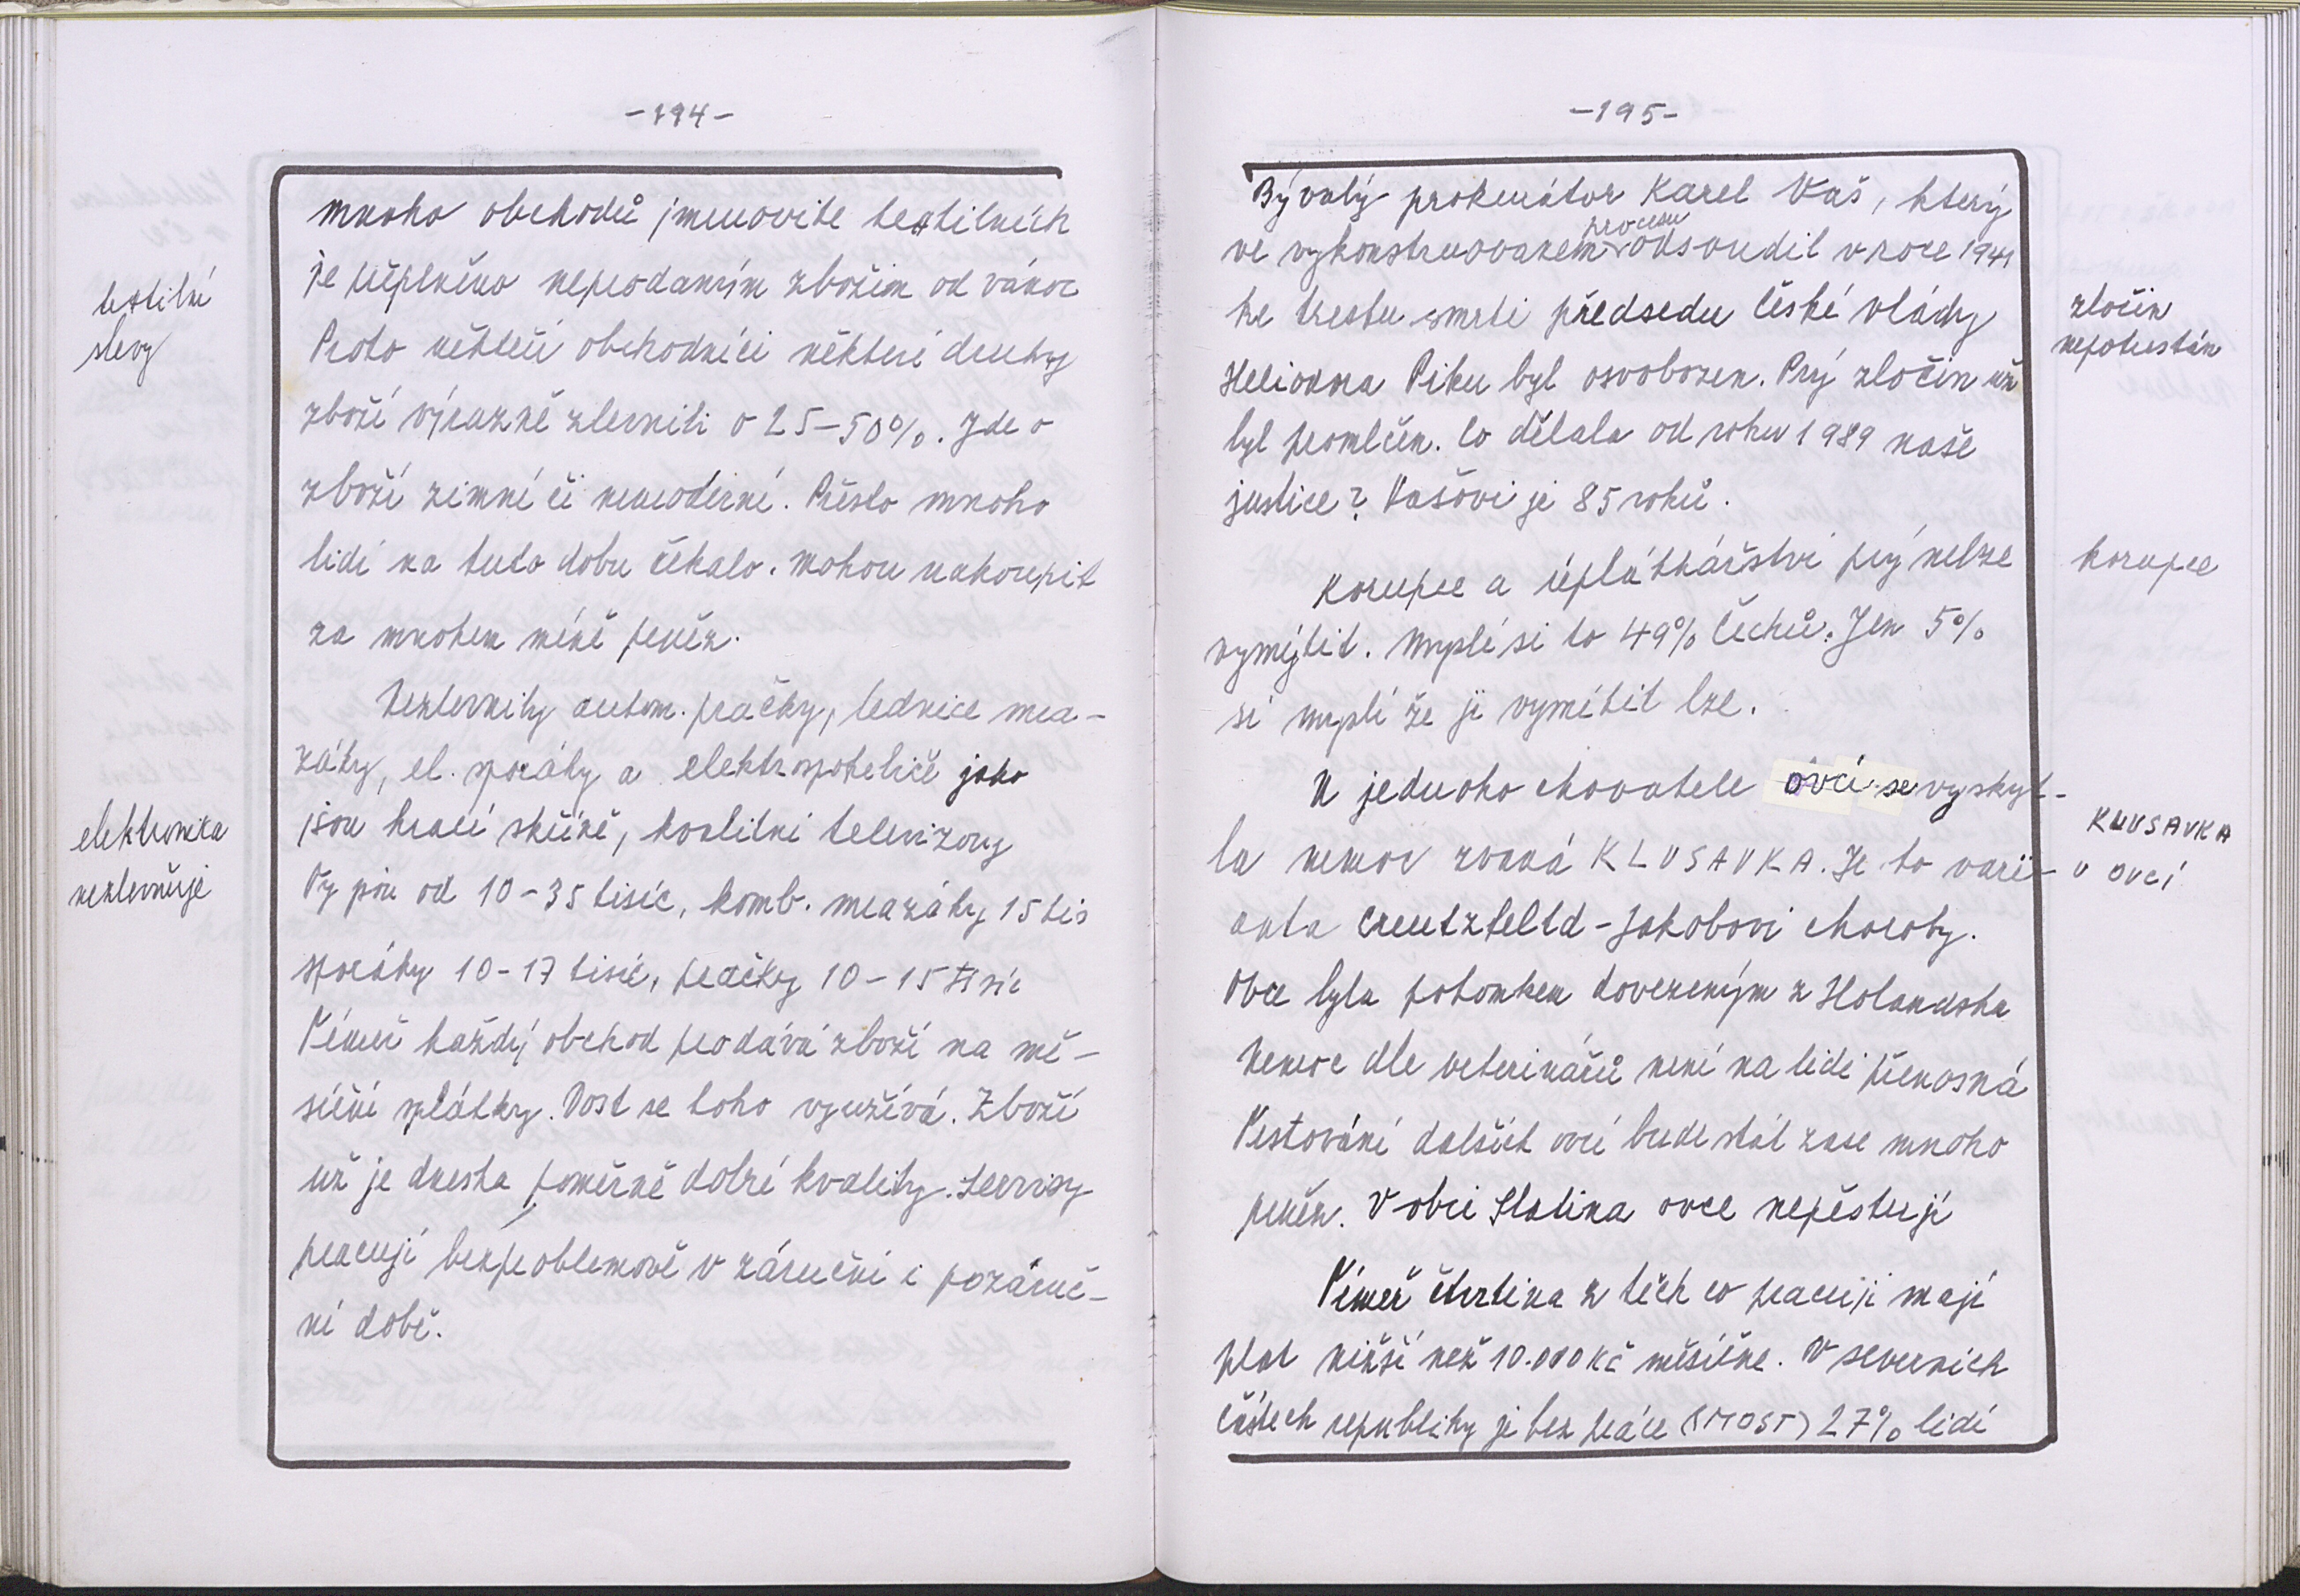 -194-
mnoho obchodů jmenovitě textilních
je přeplněno neprodaným zbožím od vánoc
textilní
slevy
Proto někteří obchodníci některé druhy
zboží výrazně zlevnili o 25-50%. Jde o
zboží zimní či nemoderní. Přesto mnoho
lidí na tuto dobu čekalo. Mohou nakoupit
za mnohem méně peněz.
Nezlevnily autom. pračky, lednice mra-
záky, el. sporáky a elektrospotřebiče jako
jsou hrací skříně, kvalitní televizory
elektronika
nezlevňuje
Ty jsou od 10-35 tisíc, komb. mrazáky 15 tis
sporáky 10-17 tisíc, pračky 10-15 tisíc
Téměř každý obchod prodává zboží na mě-
síční splátky. Dost se toho využívá. Zboží
už je dneska poměrně dobré kvality. Servisy
pracují bezproblémově v záruční i pozáruč-
ní době.
-195-
Bývalý prokurátor Karel Vaš, který
ve vykonstruovaném procesu odsoudil v roce 1941
ke trestu smrti předsedu České vlády
zločin
nepotrestán
Heliodora Piku byl osvobozen. Prý zločin už
byl promlčen. Co dělala od roku 1989 naše
justice? Vašovi je 85 roků.
Korupce a úplatkářství prý nelze
korupce
vymýtit. Myslí si to 49% Čechů. Jen 5%
si myslí že ji vymítit lze.
U jednoho chovatele ovcí se vyskyt-
la nemoc zvaná KLUSAVKA. Je to vari-
KLUSAVKA
u ovcí
anta Creutzfeltd-Jakobovi choroby.
Ovce byla potomkem dovezeným z Holandska
Nemoc dle veterinářů není na lidi přenosná
Testování dalších ovcí bude stát zase mnoho
peněz. V obci Slatina ovce nepěstují
Téměř čtvrtina z těch co pracují mají
plat nižší než 10.000 Kč měsíčne. V severních
částech republiky je bez práce (MOST) 27% lidí